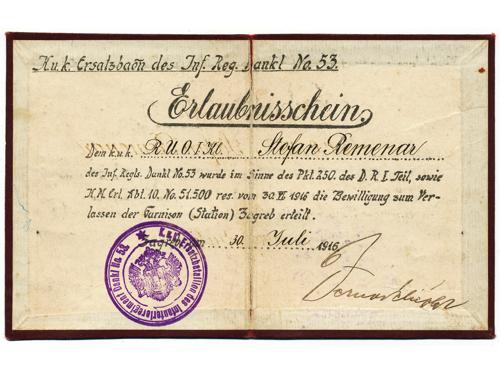 K.u.k. Ersatzbaon des Inf. Reg. Dankl No. 53.
Erlaubnisschein.
Dem k.u.k. R.U.O.I.Kl. Stefan Remenar
des Inf. Regts. Dankl No 53 wurde im Sinne des Pkt. 250. des D.R. I. Teil, sowie
K.M. Erl. Abt. 10. No. 51.500 res. vom 30. VI 1916 die Bewilligung zum Ver-
lassen der Garnison (Station) Zagreb erteilt.
Zagreb, am 30. Juli 1916
K.u.k. Ersatzbataillon des Infanterieregiment Dankl No. 53.